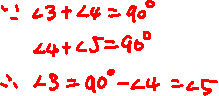 ∵ ∠3+∠4=90°
∠4+∠5=90°
∴ ∠3=90°-∠4=∠5